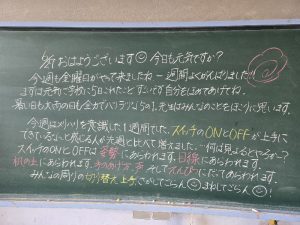 おはようございます 今日も元気ですか?
今週も金曜日がやって来ましたね 一週間よくがんばりました!!
まずは元気に学校に5日これたこと すごいです 自分をほめてあげてね。
暑い日も大雨の日も全力でがんばった5の1。先生はみんなのことをほこりに思います。
今週はメリハリを意識した1週間でした。スイッチのONとOFFが上手に
できているな~と感じる人が先週と比べて増えました。何で見えるとでしょう~?
スイッチのONとOFFは 姿勢 にあらわれます。目線にあらわれます。
机の上にあらわれます。手のあげ方、声 そしてえんぴつにだってあらわれます。
みんなの周りの切り替え上手、さがしてごらん まねしてごらん!